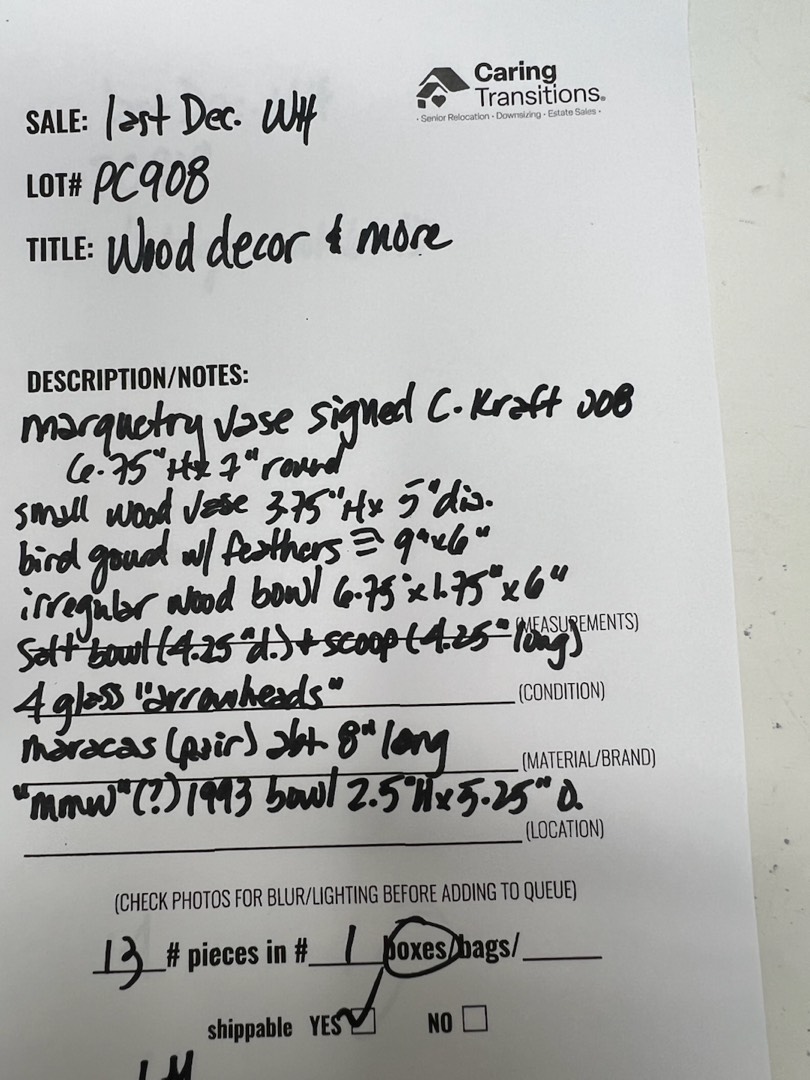 Caring
Transitions.
· Senior Relocation · Downsizing · Estate Sales ·
SALE: last Dec. WH
LOT# PC908
TITLE: Wood decor & more
DESCRIPTION/NOTES:
marquetry vase signed C. Kraft 008
6.75" H x 7" round
small wood vase 3.75" H x 5" dia.
bird gourd w/ feathers 9" x 6"
irregular wood bowl 6.75" x 1.75" x 6"
(MEASUREMENTS)
Salt bowl (4.25" d.) + scoop (4.25" long)
4 glass "arrowheads"
(CONDITION)
maracas (pair) abt 8" long
(MATERIAL/BRAND)
"mmw" (?) 1993 bowl 2.5" H x 5.25" D.
(LOCATION)
(CHECK PHOTOS FOR BLUR/LIGHTING BEFORE ADDING TO QUEUE)
13 # pieces in # 1 boxes/bags/
shippable YES NO